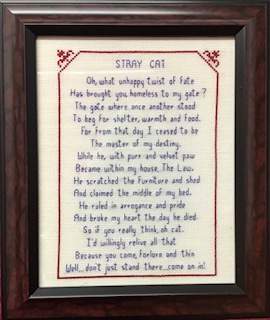 STRAY CAT
Oh, what unhappy twist of fate
Has brought you, homeless to my gate?
The gate where once another stood
To beg for shelter, warmth and food.
For from that day I ceased to be
The master of my destiny.
While he, with purr and velvet paw
Became within my house, The Law.
He scratched the furniture and shed
And claimed the middle of my bed.
He ruled in arrogance and pride
And broke my heart the day he died.
So if you really think, oh cat,
I'd willingly relive all that
Because you come, forlorn and thin
Well...don't just stand there...come on in!